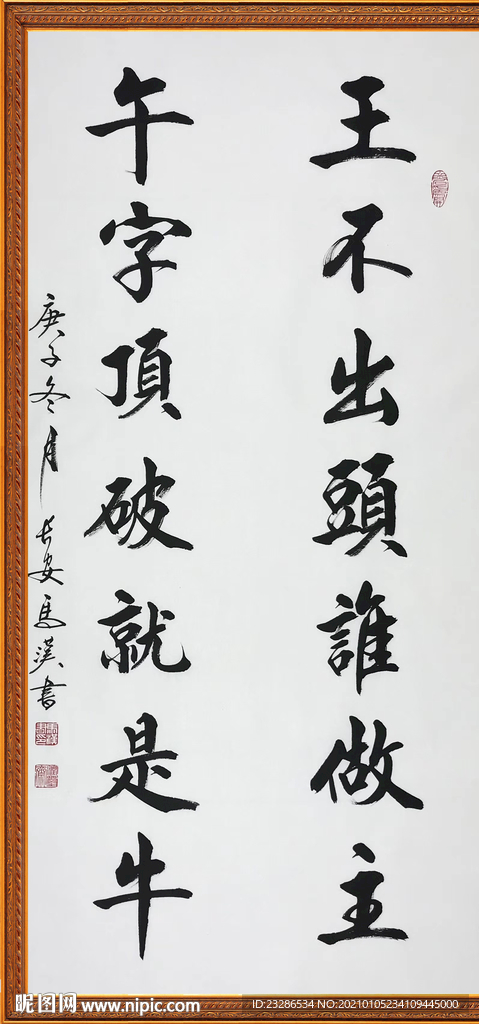 王不出頭誰做主
午字頂破就是牛
庚子冬月 長安馬漢書
昵图网 www.nipic.com
ID:23286534 NO:20210105234109445000